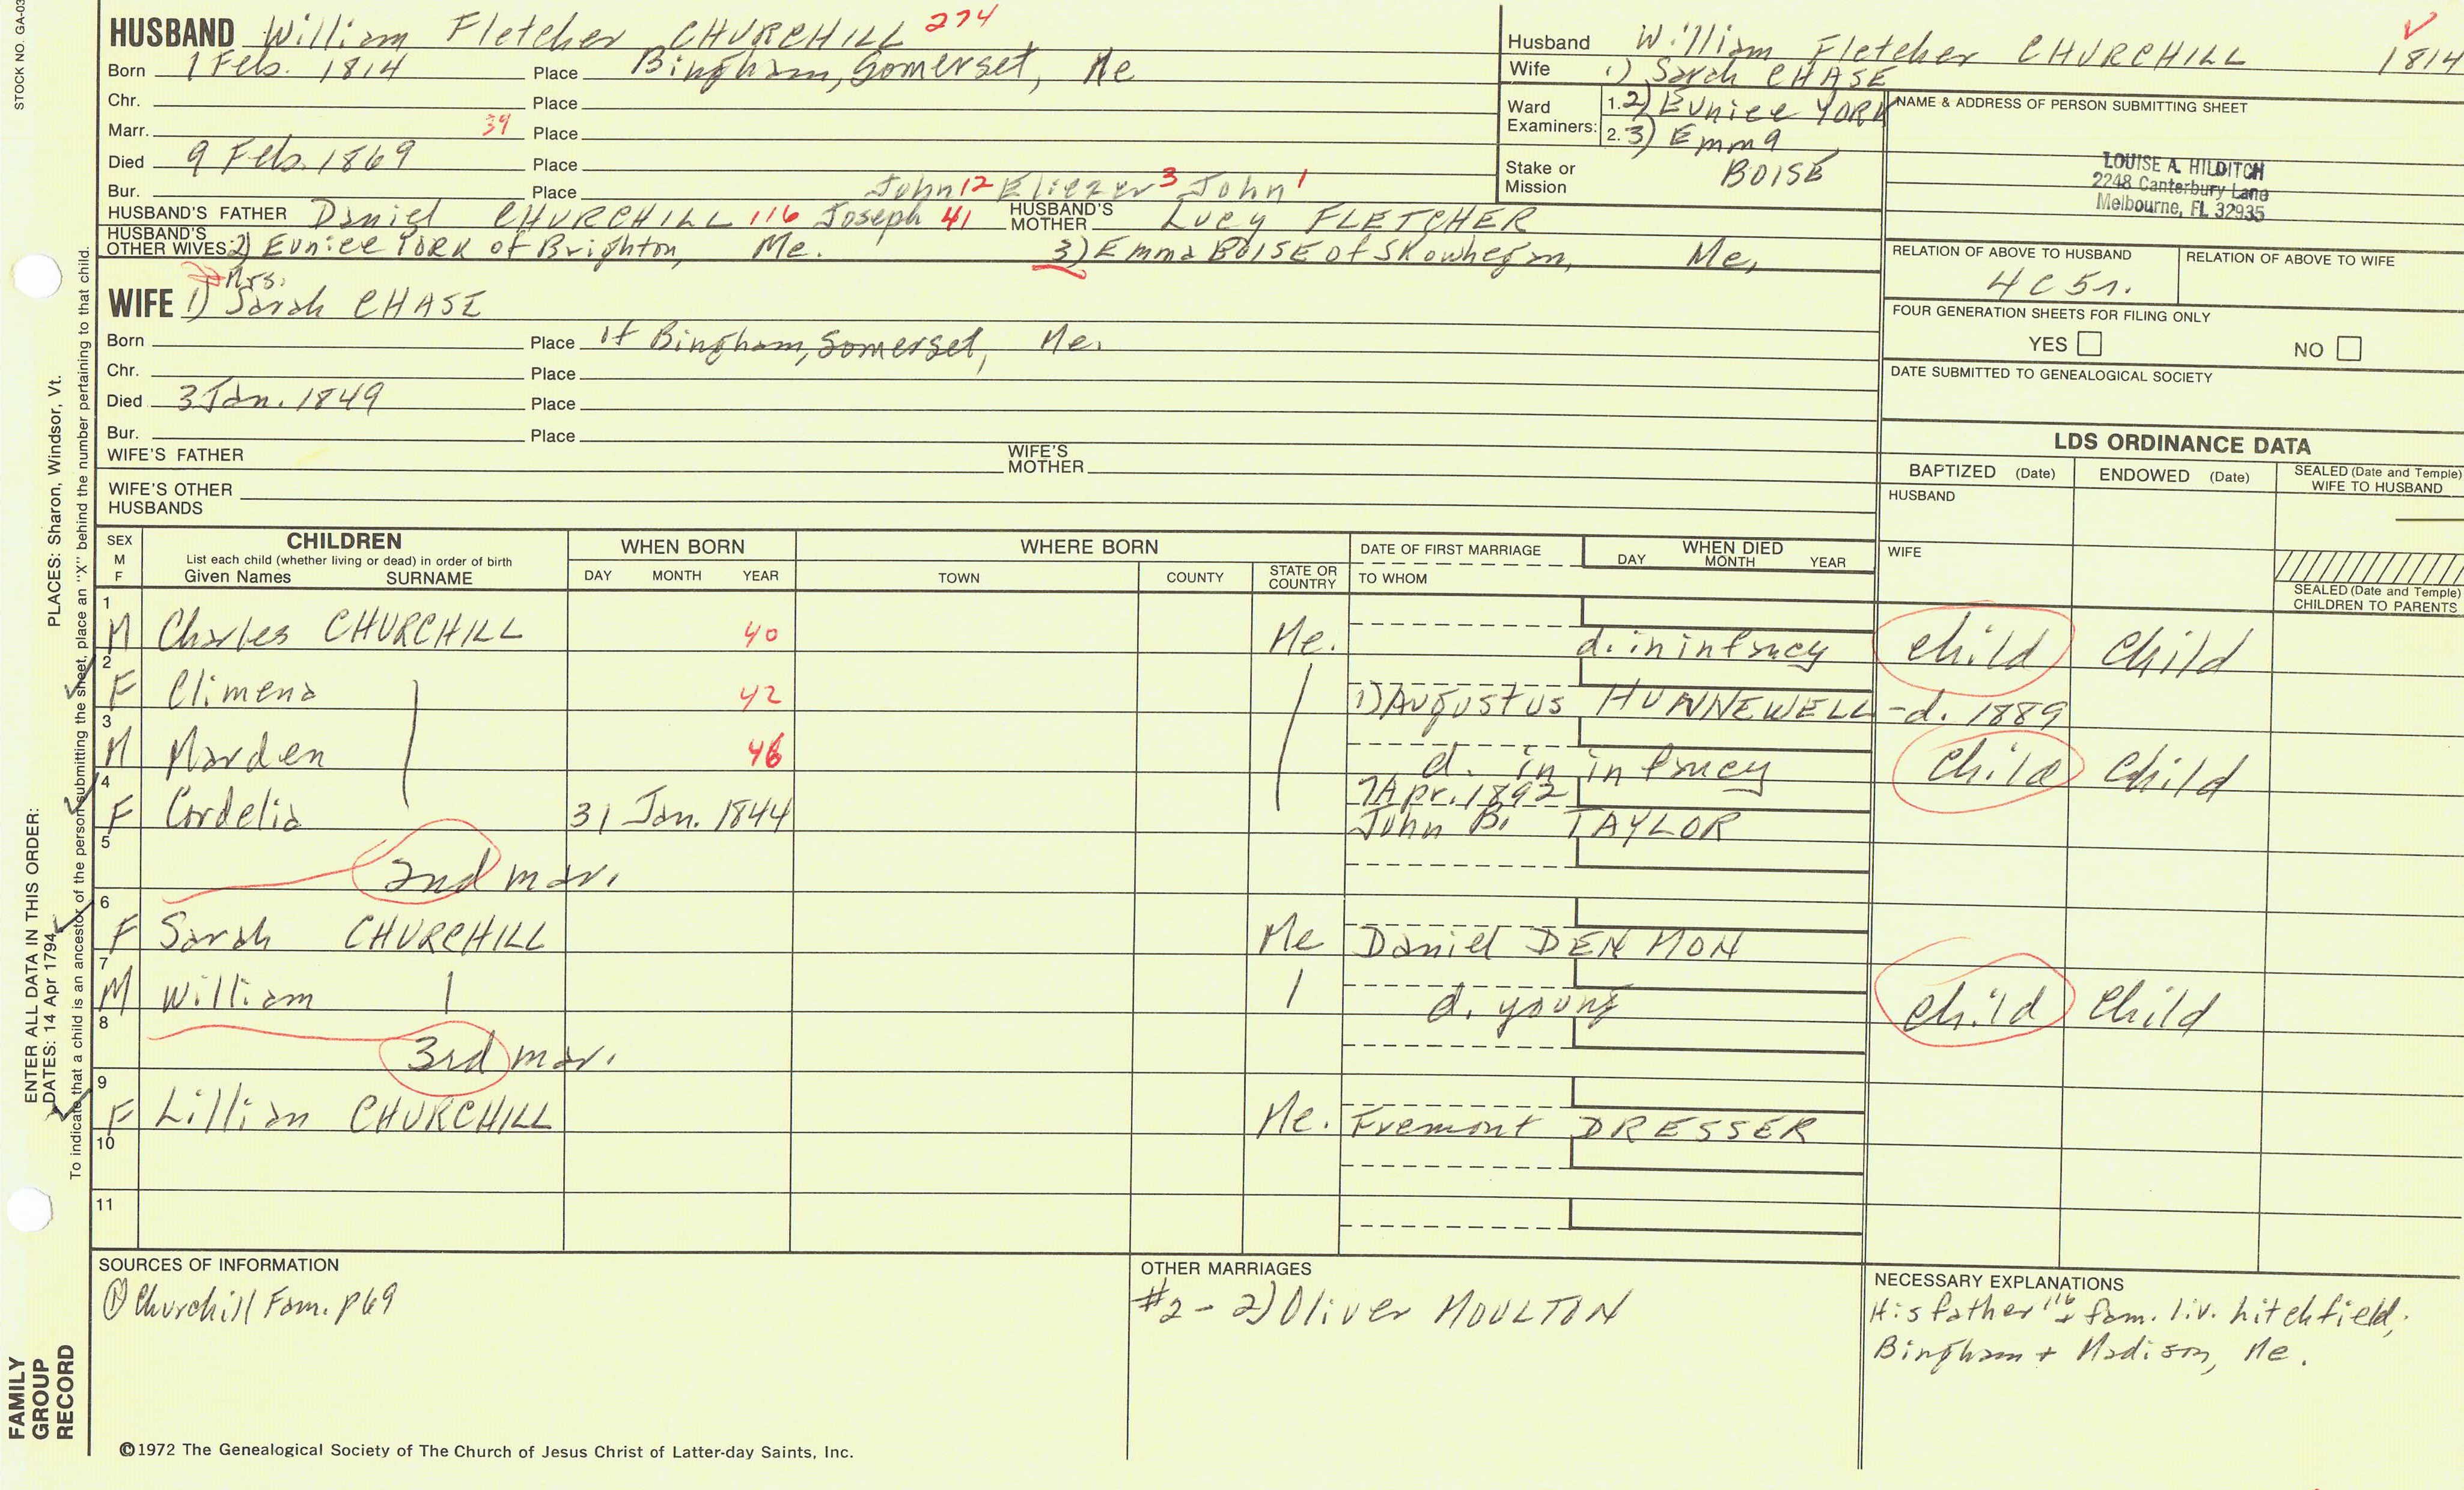 STOCK NO. GA-03
HUSBAND William Fletcher CHURCHILL 274
Born 1 Feb. 1814 Place Bingham, Somerset, Me
Chr. Place
Marr. 39 Place
Died 9 Feb. 1869 Place
Bur. Place John 12 Eliezer 3 John 1
HUSBAND'S FATHER Daniel CHURCHILL 116 Joseph 41 HUSBAND'S MOTHER Lucy FLETCHER
HUSBAND'S OTHER WIVES: 2) Eunice YORK of Brighton, Me. 3) Emma BOISE of Skowhegan, Me.
Mrs.
WIFE 1) Sarah CHASE
Born Place of Bingham, Somerset, Me.
Chr. Place
Died 3 Jan. 1849 Place
Bur. Place
WIFE'S FATHER WIFE'S MOTHER
WIFE'S OTHER HUSBANDS
Husband William Fletcher CHURCHILL 1814
Wife 1) Sarah CHASE
Ward Examiners: 1. 2) Eunice YORK
2. 3) Emma
Stake or Mission BOISE
NAME & ADDRESS OF PERSON SUBMITTING SHEET
LOUISE A. HILDITCH
2248 Canterbury Lane
Melbourne, FL 32935
RELATION OF ABOVE TO HUSBAND RELATION OF ABOVE TO WIFE
4C5r.
FOUR GENERATION SHEETS FOR FILING ONLY
YES NO
DATE SUBMITTED TO GENEALOGICAL SOCIETY
LDS ORDINANCE DATA
BAPTIZED (Date) ENDOWED (Date) SEALED (Date and Temple) WIFE TO HUSBAND
HUSBAND
WIFE
SEALED (Date and Temple) CHILDREN TO PARENTS
SEX M F
CHILDREN
List each child (whether living or dead) in order of birth
Given Names SURNAME
WHEN BORN
DAY MONTH YEAR
WHERE BORN
TOWN COUNTY STATE OR COUNTRY
DATE OF FIRST MARRIAGE
TO WHOM
WHEN DIED
DAY MONTH YEAR
1 M Charles CHURCHILL 40 Me. d. in infancy child child
2 F Climena 42 1) Augustus HUNNEWELL -d. 1889
3 M Marden 46 d. in infancy child child
4 F Cordelia 31 Jan. 1844 7 Apr. 1892 John B. TAYLOR
5 2nd mar.
6 F Sarah CHURCHILL Me Daniel DENMON
7 M William d. young child child
8 3rd mar.
9 F Lillian CHURCHILL Me. Fremont DRESSER
10
11
SOURCES OF INFORMATION
① Churchill Fam. p69
OTHER MARRIAGES
#2 - 2) Oliver MOULTON
NECESSARY EXPLANATIONS
His father 116 + fam. liv. Litchfield,
Bingham + Madison, Me.
©1972 The Genealogical Society of The Church of Jesus Christ of Latter-day Saints, Inc.
FAMILY GROUP RECORD
ENTER ALL DATA IN THIS ORDER:
DATES: 14 Apr 1794 PLACES: Sharon, Windsor, Vt.
To indicate that a child is an ancestor of the person submitting the sheet, place an "X" behind the number pertaining to that child.